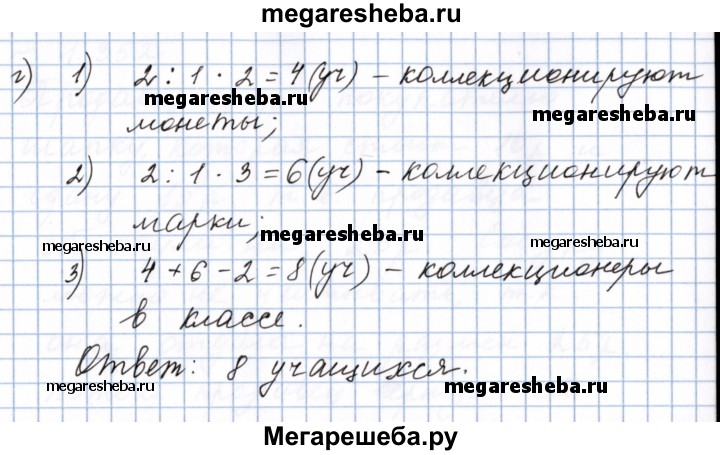 megaresheba.ru
г) 1) 2 : 1 · 2 = 4 (уч) – коллекционируют
megaresheba.ru
megaresheba.ru
монеты;
2) 2 : 1 · 3 = 6 (уч) – коллекционируют
марки;
megaresheba.ru
megaresheba.ru
megaresheba.ru
3) 4 + 6 – 2 = 8 (уч) – коллекционеры
в классе.
Ответ: 8 учащихся.
megaresheba.ru
megaresheba.ru
Мегарешеба.ру